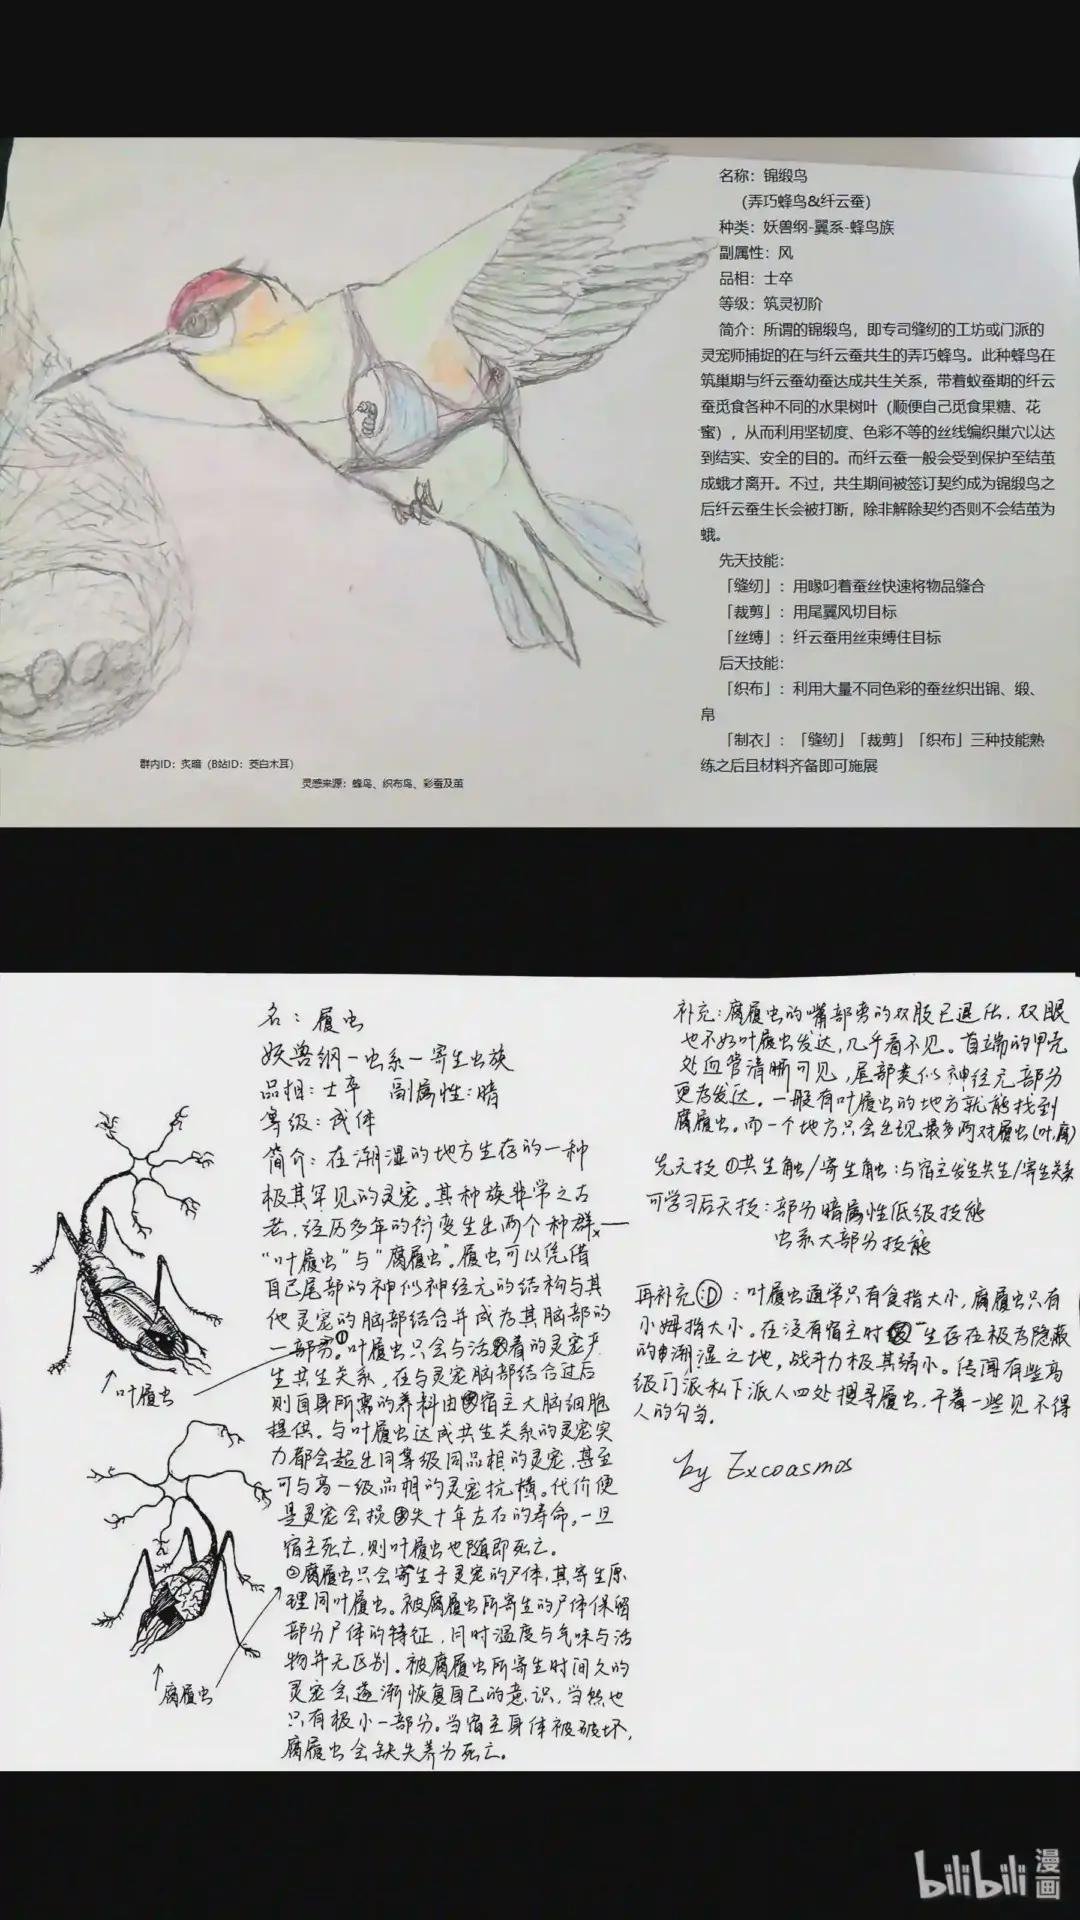 名称：锦缎鸟
(弄巧蜂鸟&纤云蚕)
种类：妖兽纲-翼系-蜂鸟族
副属性：风
品相：士卒
等级：筑灵初阶
简介：所谓的锦缎鸟，即专司缝纫的工坊或门派的
灵宠师捕捉的在与纤云蚕共生的弄巧蜂鸟。此种蜂鸟在
筑巢期与纤云蚕幼蚕达成共生关系，带着蚁蚕期的纤云
蚕觅食各种不同的水果树叶（顺便自己觅食果糖、花
蜜），从而利用坚韧度、色彩不等的丝线编织巢穴以达
到结实、安全的目的。而纤云蚕一般会受到保护至结茧
成蛾才离开。不过，共生期间被签订契约成为锦缎鸟之
后纤云蚕生长会被打断，除非解除契约否则不会结茧为
蛾。
先天技能：
「缝纫」：用喙叼着蚕丝快速将物品缝合
「裁剪」：用尾翼风切目标
「丝缚」：纤云蚕用丝束缚住目标
后天技能：
「织布」：利用大量不同色彩的蚕丝织出锦、缎、
帛
「制衣」：「缝纫」「裁剪」「织布」三种技能熟
练之后且材料齐备即可施展
群内ID：炙暗（B站ID：茭白木耳）
灵感来源：蜂鸟、织布鸟、彩蚕及茧
名：履虫
妖兽纲－虫系－寄生虫族
品相：士卒 副属性：暗
等级：成体
简介：在潮湿的地方生存的一种
极其罕见的灵宠。其种族非常之古
老，经历多年的衍变生出两个种群——
“叶履虫”与“腐履虫”。履虫可以凭借
自己尾部的神似神经元的结构与其
他灵宠的脑部结合并成为其脑部的
一部分。①叶履虫只会与活着的灵宠产
生共生关系，在与灵宠脑部结合过后
则自身所需的养料由宿主大脑细胞
提供。与叶履虫达成共生关系的灵宠实
力都会超出同等级同品相的灵宠，甚至
可与高一级品相的灵宠抗横。代价便
是灵宠会损失十年左右的寿命。一旦
宿主死亡，则叶履虫也随即死亡。
②腐履虫只会寄生于灵宠的尸体，其寄生原
理同叶履虫。被腐履虫所寄生的尸体保留
部分尸体的特征，同时温度与气味与活
物并无区别。被腐履虫所寄生时间久的
灵宠会逐渐恢复自己的意识，当然也
只有极小一部分。当宿主身体被破坏，
腐履虫会缺失养为死亡。
叶履虫
腐履虫
补充：腐履虫的嘴部旁的双肢已退化，双眼
也不如叶履虫发达，几乎看不见。首端的甲壳
处血管清晰可见，尾部类似神经元部分
更为发达。一般有叶履虫的地方就能找到
腐履虫。而一个地方只会出现最多两对履虫(叶,腐)
先天技①共生触/寄生触：与宿主发生共生/寄生关系
可学习后天技：部分暗属性低级技能
虫系大部分技能
再补充:D：叶履虫通常只有食指大小，腐履虫只有
小姆指大小。在没有宿主时生存在极为隐蔽
的潮湿之地，战斗力极其弱小。传闻有些高
级门派私下派人四处搜寻履虫，干着一些见不得
人的勾当。
by Excoasmos
bilibili 漫画